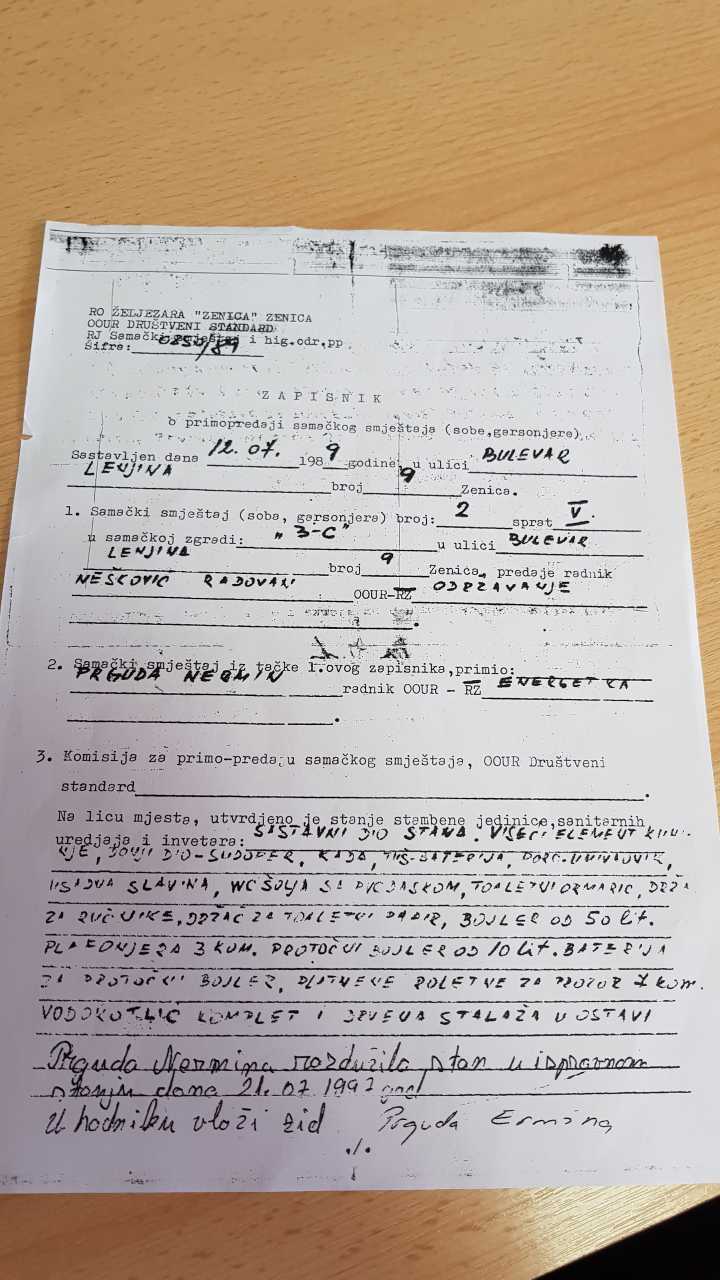 RO ŽELJEZARA "ZENICA" ZENICA
OOUR DRUŠTVENI STANDARD
RJ Samački smještaj i hig.odr.pp
Šifra: 0250/89
Z A P I S N I K
o primopredaji samačkog smještaja (sobe,garsonjere)
Sastavljen dana 12.07. 198 9 godine, u ulici BULEVAR
LENJINA broj 9 Zenica.
1. Samački smještaj (soba, garsonjera) broj: 2 sprat V.
u samačkoj zgradi: "3-C" u ulici BULEVAR
LENJINA broj 9 Zenica, predaje radnik
NEŠKOVIĆ RADOVAN OOUR-RZ ODRŽAVANJE
2. Samački smještaj iz tačke 1.ovog zapisnika,primio:
PRGUDA NERMIN radnik OOUR - RZ ENERGETIKA
3. Komisija za primo-predaju samačkog smještaja, OOUR Društveni
standard
Na licu mjesta, utvrdjeno je stanje stambene jedinice,sanitarnih
uredjaja i invetara: SASTAVNI DIO STANA. VISEĆI ELEMENT KUHI-
NJE, DONJI DIO-SUDOPER, KADA, TUŠ-BATERIJA, PORC.UMIVAONIK,
SLAVINA, WC ŠOLJA SA DASKOM, TOALETNI ORMARIĆ, DRŽA
ZA RUČNIKE, DRŽAČ ZA TOALETNI PAPIR, BOJLER OD 50 lit.
PLAFONJERA 3 KOM. PROTOČNI BOJLER OD 10 lit. BATERIJA
ZA PROTOČNI BOJLER, PLATNENE ROLETNE ZA PROZOR 7 KOM.
VODOKOTLIĆ KOMPLET I DRVENA STALAŽA U OSTAVI
Prguda Nermina razdužila stan u ispravnom
stanju dana 21.07 199 god
U hodniku vlaži zid Prguda Ermina
./.